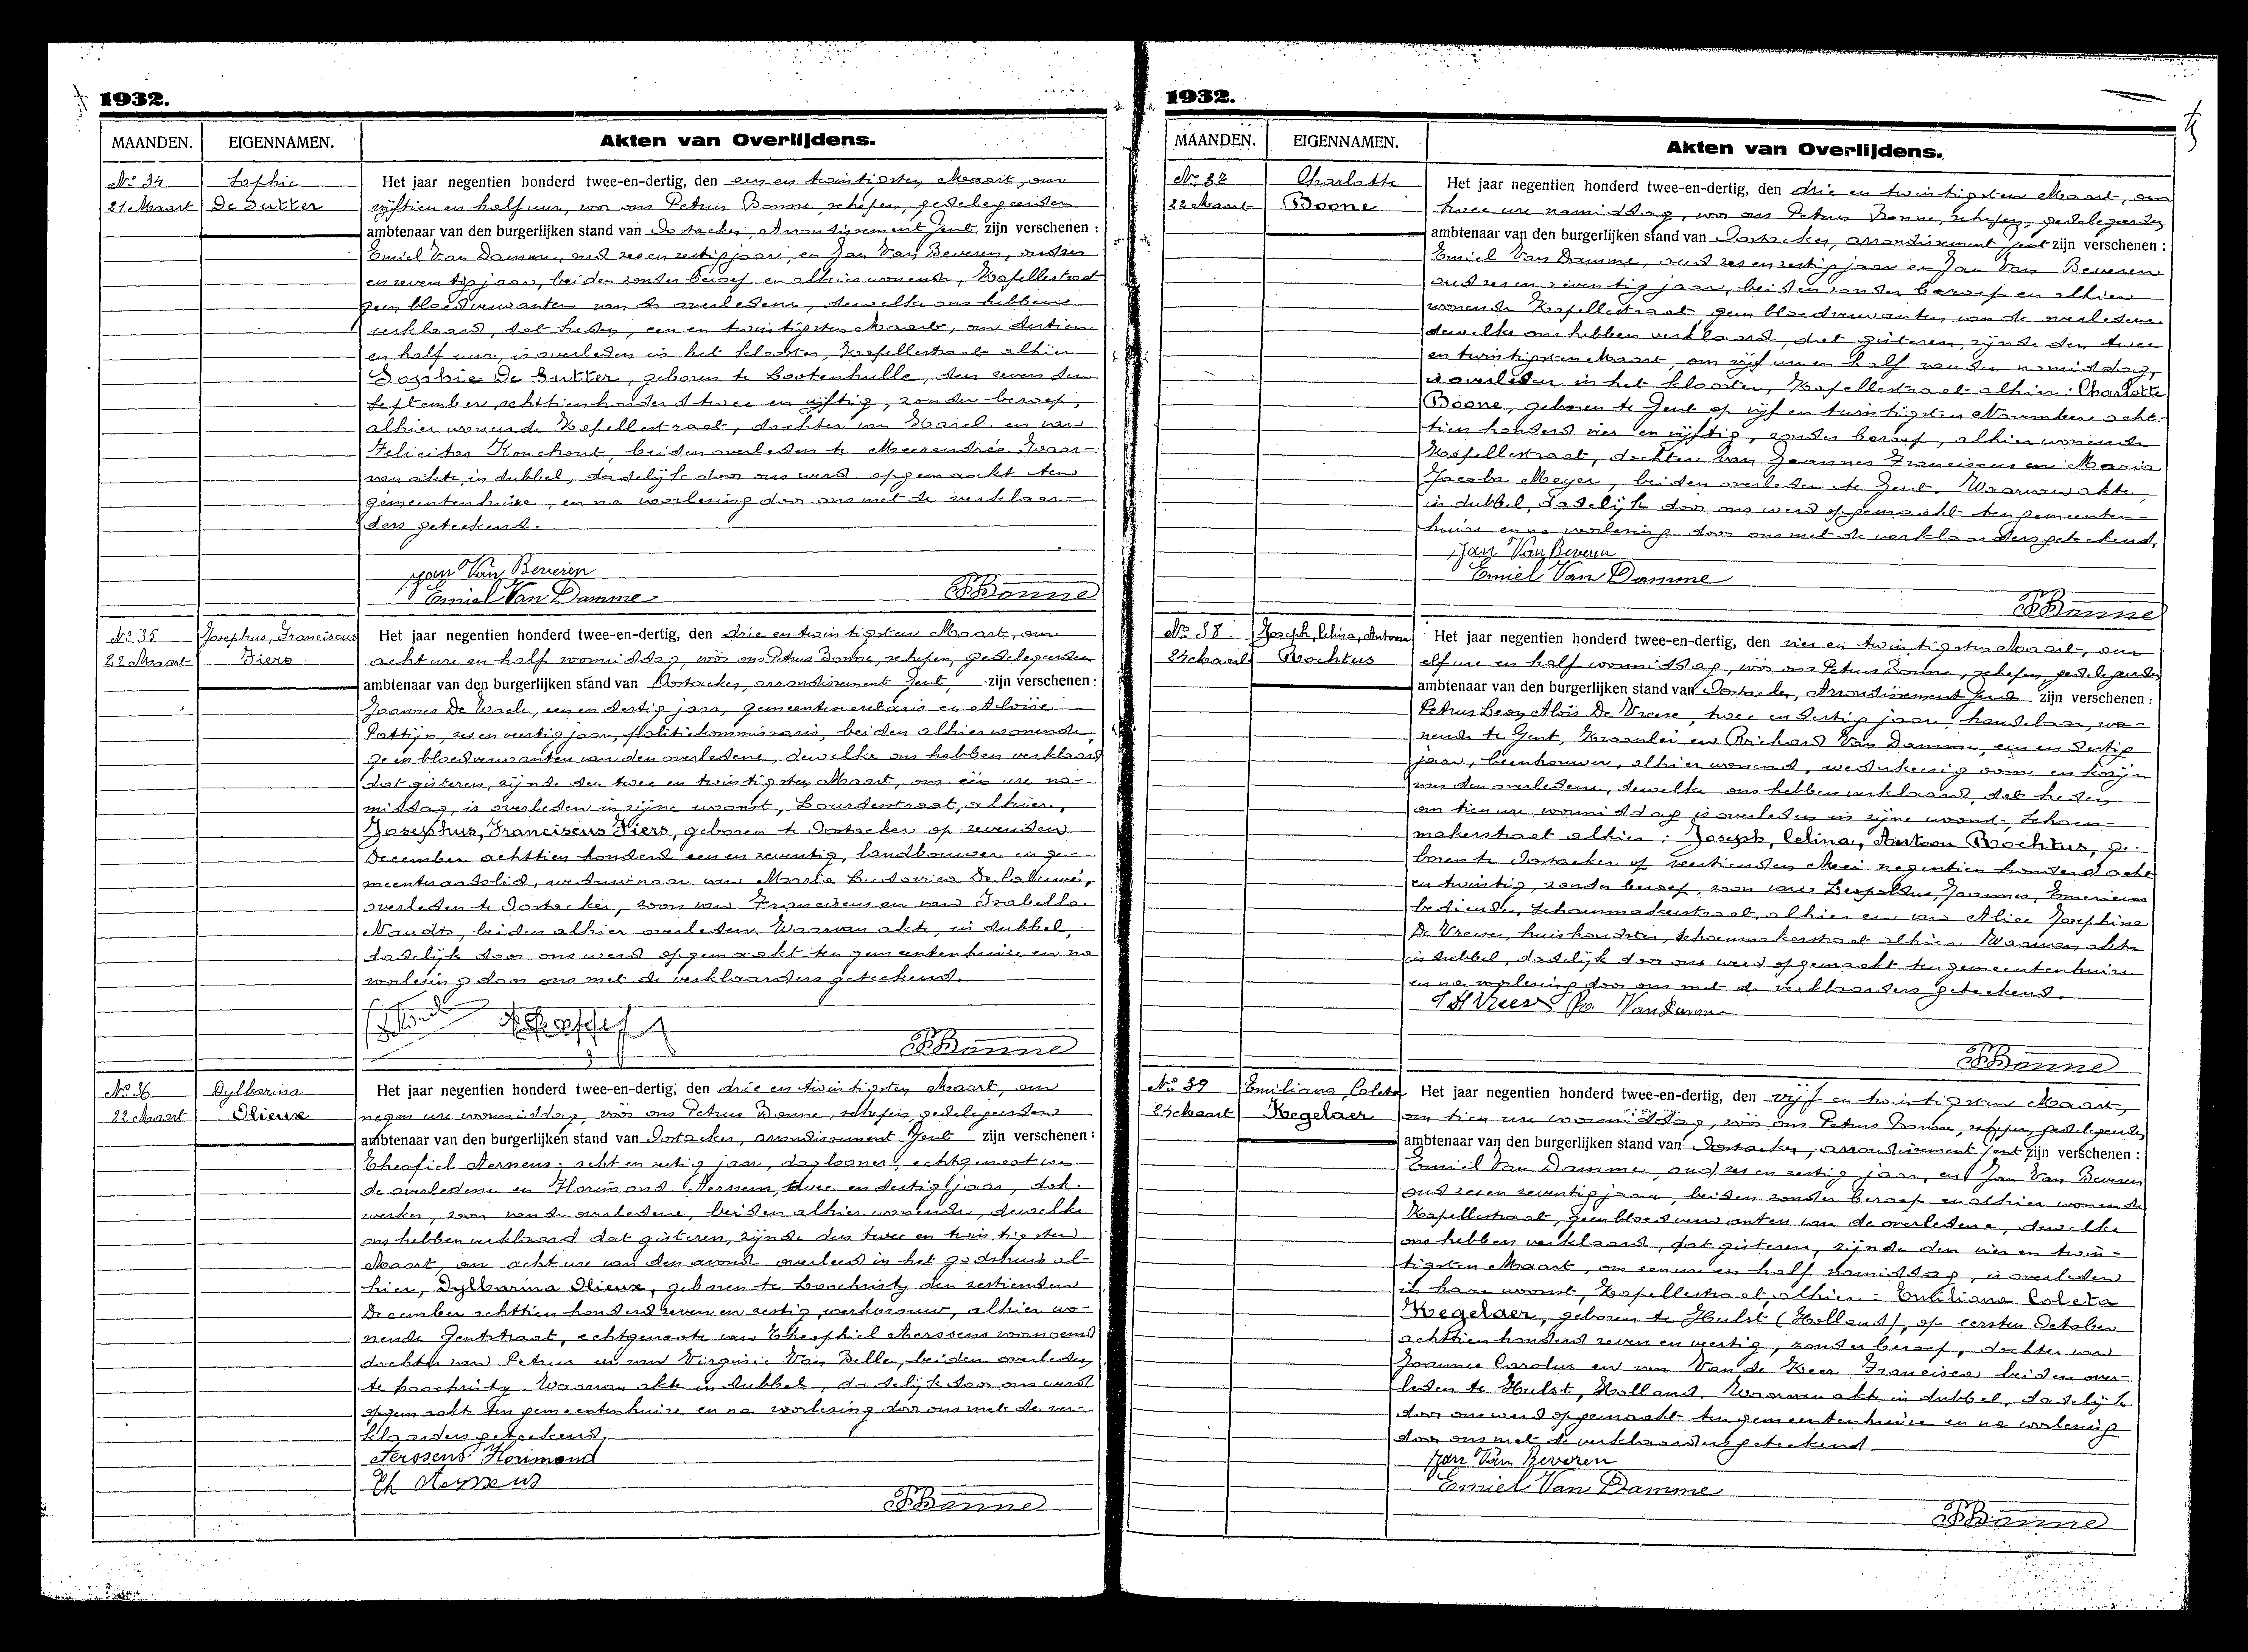 1932.
MAANDEN. EIGENNAMEN. Akten van Overlijdens.
No 34
21 Maart
Sophie
De Sutter
Het jaar negentien honderd twee-en-dertig, den een en twintigsten Maart, om
vijftien en half uur, voor ons Petrus Bonne, schepen, gedelegeerden
ambtenaar van den burgerlijken stand van Oostacker, Arrondissement Gent zijn verschenen :
Emiel Van Damme, oud zes en zestig jaar, en Jan Van Beveren, oud zes
en zeventig jaar, beiden zonder beroep en alhier wonende, Kapellestraat
geen bloedverwanten van de overledene, dewelke ons hebben
verklaard, dat heden, een en twintigsten Maart, om dertien
en half uur, is overleden in het klooster, Kapellestraat alhier
Sophie De Sutter, geboren te Lootenhulle, den zevenden
September, achttienhonderd twee en vijftig, zonder beroep,
alhier wonende Kapellestraat, dochter van Karel en van
Felicitas Konckout, beiden overleden te Meerendrée. Waar-
van akte, in dubbel, dadelijk door ons werd opgemaakt ten
gemeentenhuize, en na voorlezing door ons met de verklaar-
ders geteekend.
Jan Van Beveren
Emiel Van Damme
PBonne
No 35
22 Maart
Josephus, Franciscus
Fiers
Het jaar negentien honderd twee-en-dertig, den drie en twintigsten Maart, om
acht ure en half voormiddag, vóór ons Petrus Bonne, schepen, gedelegeerden
ambtenaar van den burgerlijken stand van Oostacker, arrondissement Gent, zijn verschenen :
Joannes De Waele, een en dertig jaar, gemeentesecretaris en Aloïse
Pattijn, zes en veertig jaar, politiekommissaris, beiden alhier wonende,
geen bloedverwanten van den overledene, dewelke ons hebben verklaard
dat gisteren, zijnde den twee en twintigsten Maart, om één ure na-
middag, is overleden in zijne woonst, Lourdesstraat, alhier,
Josephus, Franciscus Fiers, geboren te Oostacker op zevenden
December achttien honderd een en zeventig, landbouwer en ge-
meenteraadslid, weduwnaar van Maria Ludovica De Caluwé,
overleden te Oostacker, zoon van Franciscus en van Isabella
Naudts, beiden alhier overleden. Waarvan akte, in dubbel,
dadelijk door ons werd opgemaakt ten gemeentenhuize en na
voorlezing door ons met de verklaarders geteekend.
PBonne
No 36
22 Maart
Dylbarina
Olieux
Het jaar negentien honderd twee-en-dertig, den drie en twintigsten Maart, om
negen ure voormiddag, vóór ons Petrus Bonne, schepen gedelegeerden
ambtenaar van den burgerlijken stand van Oostacker, arrondissement Gent zijn verschenen :
Theofiel Aernens, acht en zestig jaar, daglooner, echtgenoot van
de overledene en Horimond Aernens, twee en dertig jaar, dok-
werker, zoon van de overledene, beiden alhier wonende, dewelke
ons hebben verklaard dat gisteren, zijnde den twee en twintigsten
Maart, om acht ure van den avond overleed in het godshuis al-
hier, Dylbarina Olieux, geboren te Loochristy den zestienden
December achttien honderd zeven en zestig, werkvrouw, alhier wo-
nende Gentstraat, echtgenoote van Theophiel Aerssens voornoemd
dochter van Petrus en van Virginie Van Belle, beiden overleden
te Loochristy. Waarvan akte in dubbel, dadelijk door ons werd
opgemaakt ten gemeentenhuize en na voorlezing door ons met de ver-
klaarders geteekend.
Aerssens Horimond
Th Aerssens
PBonne
1932.
MAANDEN. EIGENNAMEN. Akten van Overlijdens.
No 37
22 Maart
Charlotte
Boone
Het jaar negentien honderd twee-en-dertig, den drie en twintigsten Maart, om
twee ure namiddag, voor ons Petrus Bonne, schepen, gedelegeerden
ambtenaar van den burgerlijken stand van Oostacker, arrondissement Gent zijn verschenen :
Emiel Van Damme, oud zes en zestig jaar en Jan Van Beveren
oud zes en zeventig jaar, beiden zonder beroep en alhier
wonende Kapellestraat geen bloedverwanten van de overledene
dewelke ons hebben verklaard, dat gisteren, zijnde den twee
en twintigsten Maart, om vijf ure en half van den namiddag,
is overleden in het klooster, Kapellestraat alhier : Charlotte
Boone, geboren te Gent op vijf en twintigsten November acht-
tien honderd vier en vijftig, zonder beroep, alhier wonende
Kapellestraat, dochter van Joannes Franciscus en Maria
Jacoba Meyer, beiden overleden te Gent. Waarvan akte,
in dubbel, dadelijk door ons werd opgemaakt ten gemeenten-
huize en na voorlezing door ons met de verklaarders geteekend.
Jan Van Beveren
Emiel Van Damme
PBonne
No 38
24 Maart
Joseph, Celina, Antoon
Rochtus
Het jaar negentien honderd twee-en-dertig, den vier en twintigsten Maart, om
elf ure en half voormiddag, vóór ons Petrus Bonne, schepen, gedelegeerden
ambtenaar van den burgerlijken stand van Oostacker, Arrondissement Gent zijn verschenen :
Petrus Leon Aloïs De Vreese, twee en dertig jaar, handelaar, wo-
nende te Gent, Kraanlei en Richard Van Damme, een en dertig
jaar, beenhouwer, alhier wonend, wederkeerig oom en kozijn
van den overledene, dewelke ons hebben verklaard, dat heden
om tien ure voormiddag is overleden in zijne woonst, Schoen-
makerstraat alhier : Joseph, Celina, Antoon Rochtus, ge-
boren te Oostacker op veertienden Mei negentien honderd acht
en twintig, zonder beroep, zoon van Leopoldus, Joannes, Emericus
bediende, Schoenmakerstraat, alhier en van Alice Josephina
De Vreese, huishoudster, Schoenmakerstraat alhier. Waarvan akte
in dubbel, dadelijk door ons werd opgemaakt ten gemeentenhuize
en na voorlezing door ons met de verklaarders geteekend.
Van Damme
PBonne
No 39
24 Maart
Emiliana, Coleta
Kegelaer
Het jaar negentien honderd twee-en-dertig, den vijf en twintigsten Maart,
om tien ure voormiddag, vóór ons Petrus Bonne, schepen, gedelegeerden
ambtenaar van den burgerlijken stand van Oostacker, arrondissement Gent zijn verschenen :
Emiel Van Damme, oud zes en zestig jaar, en Jan Van Beveren
oud zes en zeventig jaar, beiden zonder beroep en alhier wonende
Kapellestraat, geen bloedverwanten van de overledene, dewelke
ons hebben verklaard, dat gisteren, zijnde den vier en twin-
tigsten Maart, om een ure en half namiddag, is overleden
in hare woonst, Kapellestraat, alhier : Emiliana Coleta
Kegelaer, geboren te Hulst (Holland), op eersten October
achttien honderd zeven en veertig, zonder beroep, dochter van
Joannes Carolus en van Van de Keer Francisca, beiden over-
leden te Hulst, Holland. Waarvan akte in dubbel, dadelijk
door ons werd opgemaakt ten gemeentenhuize en na voorlezing
door ons met de verklaarders geteekend.
Jan Van Beveren
Emiel Van Damme
PBonne